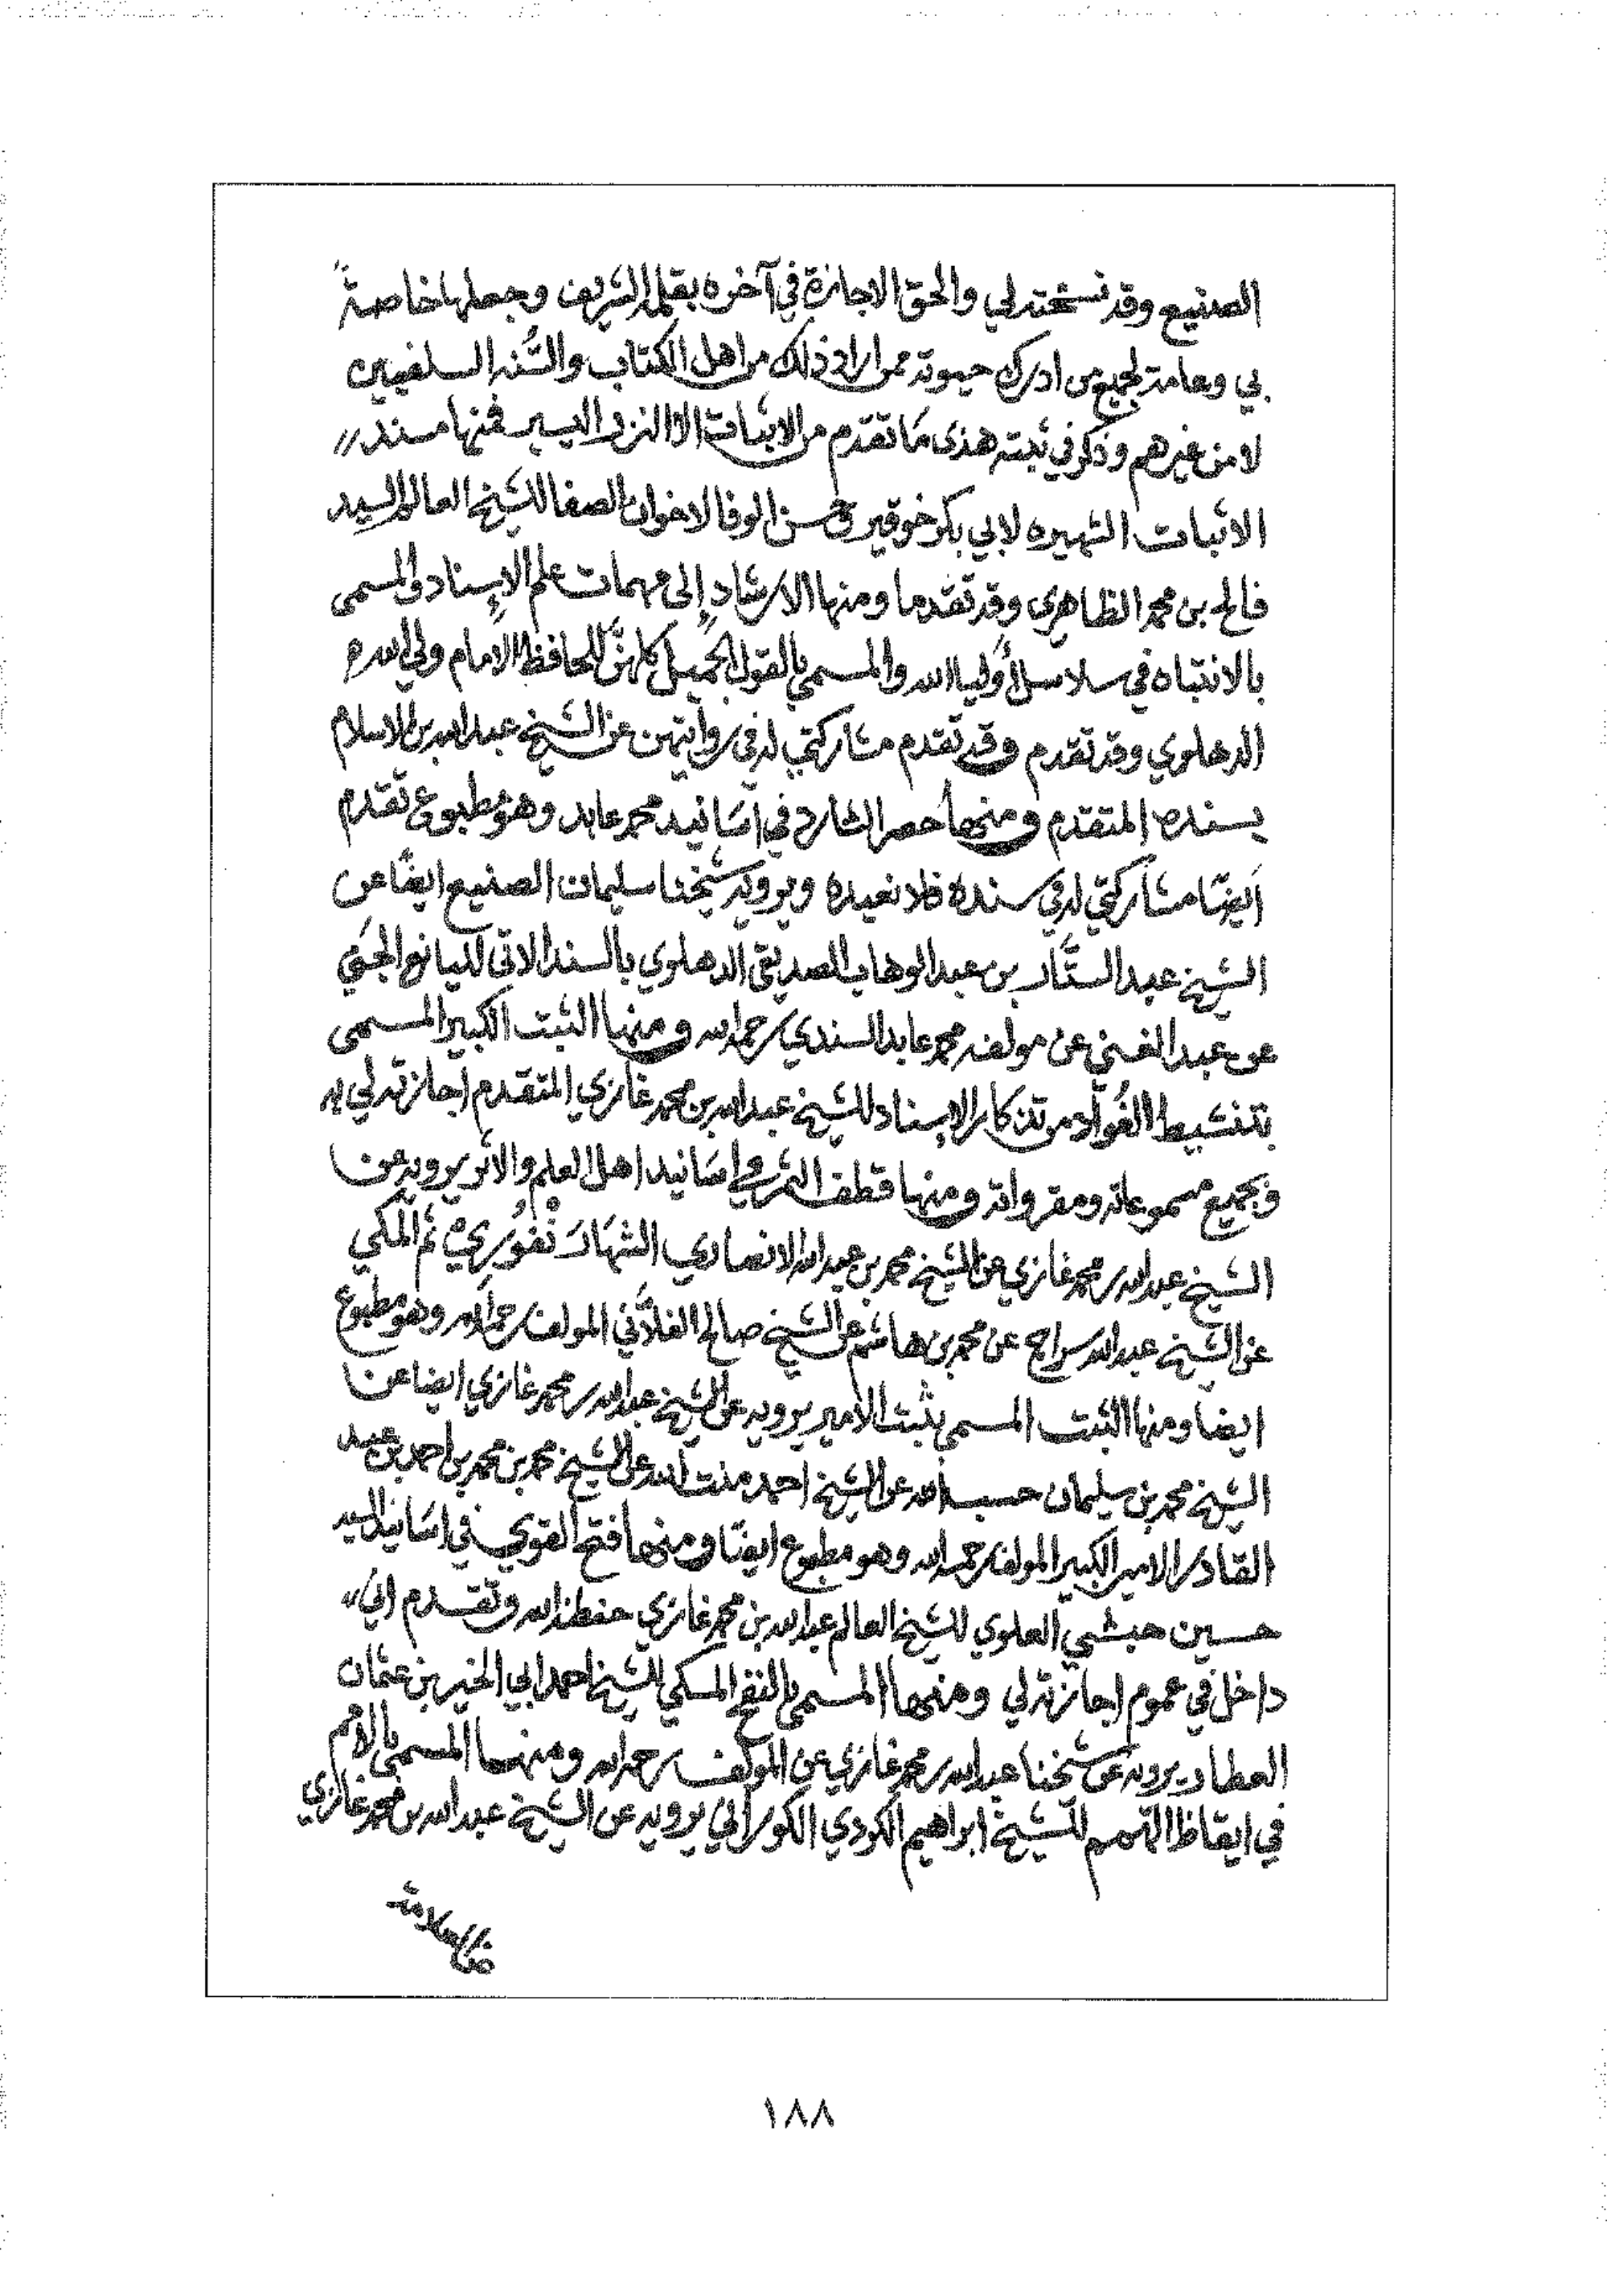 الصنيع وقد نسخته لي والحق الاجازة في آخره بقلمه الشريف وجعلها خاصةً
بي وعامة لجميع من ادرك حيوته ممن اراد ذلك من اهل الكتاب والسُّنه السلفيين
لا من غيرهم وذكر في ثبته هذى ما تقدم من الاثبات الا النزر اليسير فمنها مسند
الاثبات الشهيره لابي بكر خوقير وحسن الوفا لاخوان الصفا للشيخ العالم السيد
فالح بن محمد الظاهري وقد تقدما ومنها الارشاد إلى مهمات علم الإسناد والمسمى
بالانتباه في سلاسل أوليا الله والمسمى بالقول الجميل كلهنّ للحافظ الامام ولي الله
الدهلوي وقد تقدم وقد تقدم مشاركتي له في روايتهن عن الشيخ عبد الله بن الاسلام
بسنده المتقدم ومنها حصر الشارد في أسانيد محمد عابد وهو مطبوع تقدم
أيضًا مشاركتي له في سنده فلا نعيده ويرويه شيخنا سليمان الصنيع ايضًا عن
الشيخ عبد الستَّار بن عبد الوهاب الصديقي الدهلوي بالسند الاتى لليانع الجني
عن عبد الغني عن مولفه محمد عابد السندي رحمه الله ومنها الثبت الكبير المسمى
بتنشيط الفُوَاد من تذكار الإسناد للشيخ عبد الله بن محمد غازي المتقدم إجازته لي به
وبجميع مسموعاته ومقرواته ومنها قطف الثمر في اسانيد اهل العلم والاثر يرويه عن
الشيخ عبد الله بن محمد غازي عن الشيخ محمد بن عبد الله الانصاري الشهَارَ نْفُوْرِي ثم المكي
عن الشيخ عبد الله سراج عن محمد بن هاشم عن الشيخ صالح الفلَّاني المولف رحمه الله وهو مطبوع
ايضا ومنها الثبت المسمى بثبت الأمير يرويه عن الشيخ عبد الله بن محمد غازي ايضا عن
الشيخ محمد بن سليمان حسب الله عن الشيخ احمد منت الله عن الشيخ محمد بن محمد بن احمد بن عبد
القادر الامير الكبير المولف رحمه الله وهو مطبوع ايضًا ومنها فتح القوي في اسَانيد السيد
حسين حبشي العلوي للشيخ العالم عبد الله بن محمد غازي حفظه الله وتقدم اني
داخل في عموم إجازته لي ومنها المسمى بالنفح المسكي للشيخ احمد ابي الخير بن عثمان
العطار يرويه عن شيخنا عبد الله بن محمد غازي عن المؤلف رحمه الله ومنها المسمى بالامم
في ايقاظ الهمم للشيخ ابراهيم الكردي الكوراني يرويه عن الشيخ عبد الله بن محمد غازي
عن العلامة
١٨٨